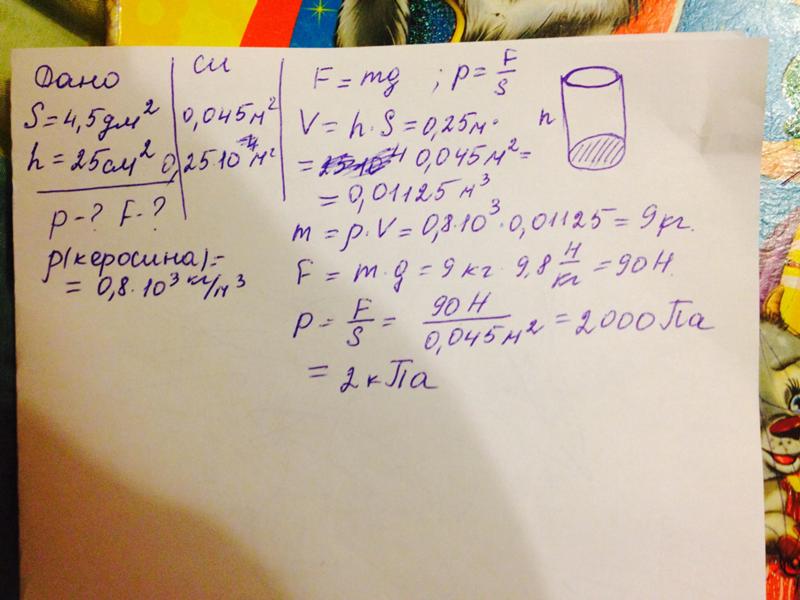 Дано
S = 4,5 дм²
h = 25 см²
p-? F-?
ρ(керосина)=
= 0,8·10³ кг/м³
СИ
0,045 м²
0,25·10⁻⁴ м²
F = mg ; p = F/S
V = h·S = 0,25 м·
= 0,045 м² =
= 0,01125 м³
m = ρ·V = 0,8·10³·0,01125 = 9 кг.
F = m·g = 9 кг · 9,8 Н/кг = 90 Н.
p = F/S = 90 Н/0,045 м² = 2000 Па
= 2 кПа
h